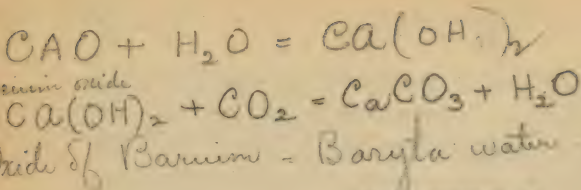 CAO + H₂O = Ca(OH.)₂
oxide
Ca(OH)₂ + CO₂ = CaCO₃ + H₂O
of Barium = Baryta water